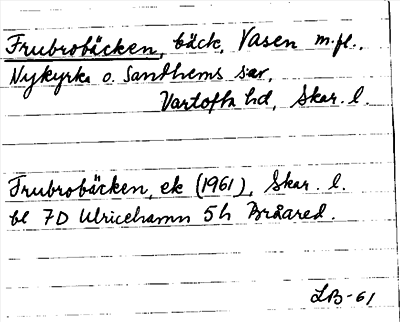 Frubrobäcken, bäck, Vasen m.fl.,
Nykyrke o. Sandhems snr,
Vartofta hd, Skar. l.
Frubrobäcken, ek (1961), Skar. l.
bl 7D Ulricehamn 5h Bråared.
LB-61